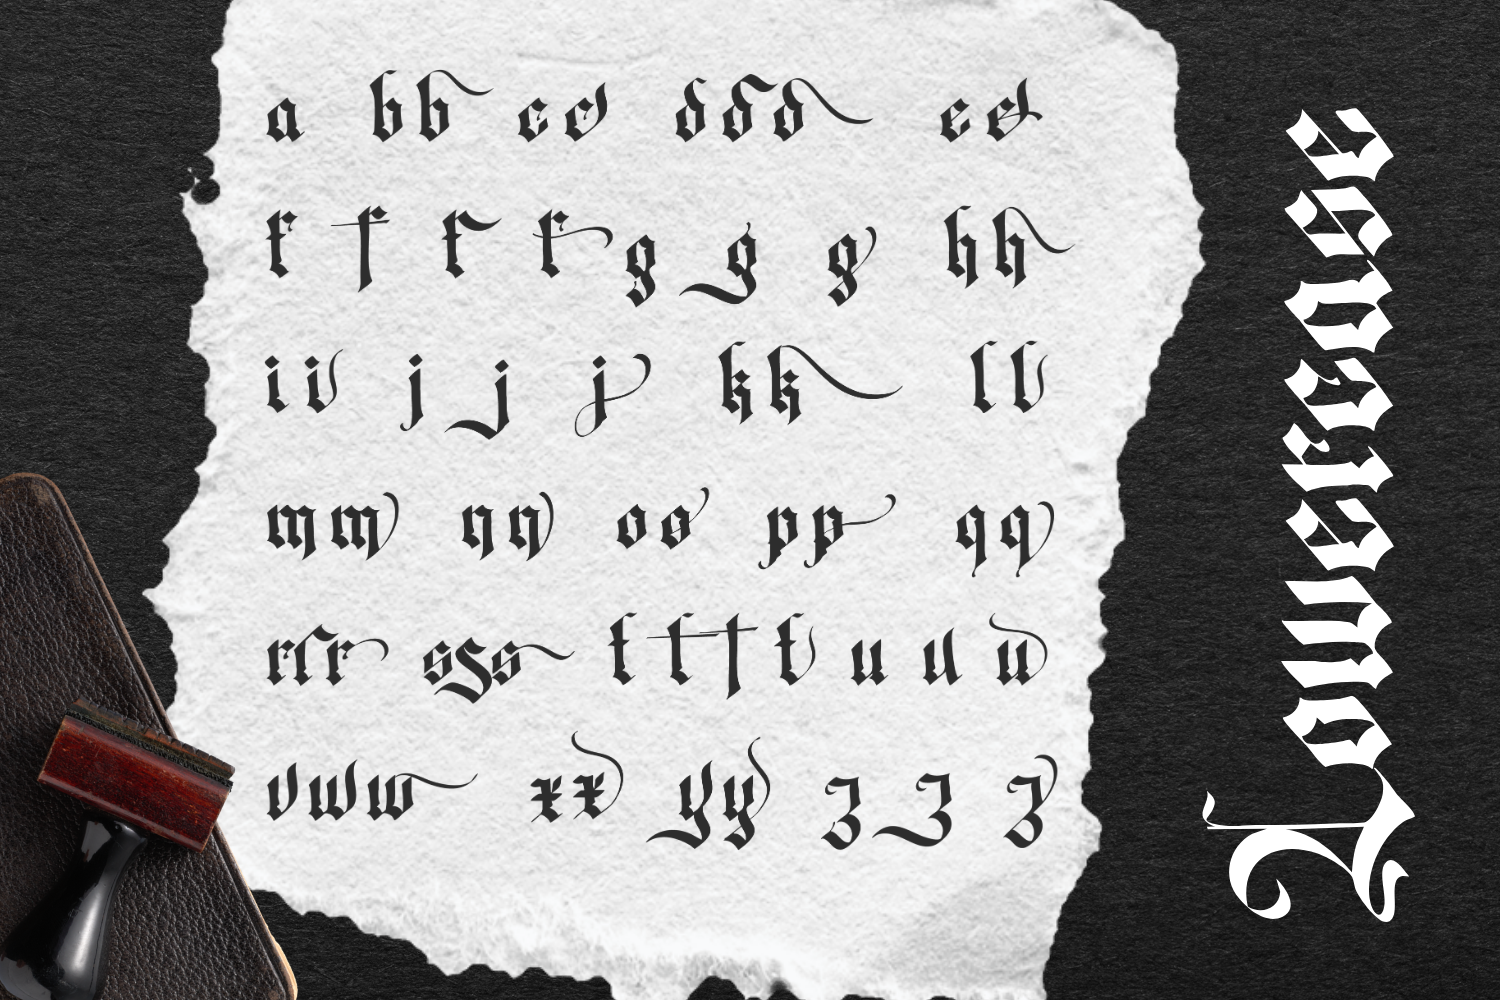 a bb cc ddd ee
f f f f g g g hh
ii j j j kk ll
mm nn oo pp qq
rrr sss t t t t u u u
vww xx yy z z z
Lowercase